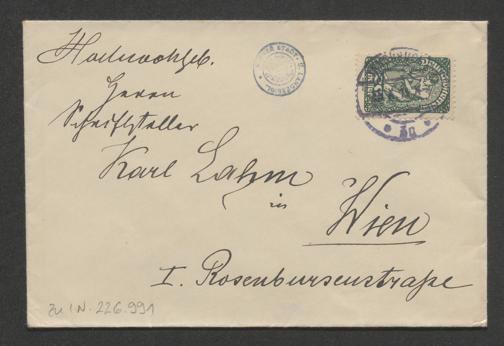 Hochwohlgeb.
Herrn
Schriftsteller
Karl Lahm
in
Wien
I. Rosenbursenstraße
Zu I.N. 226.991